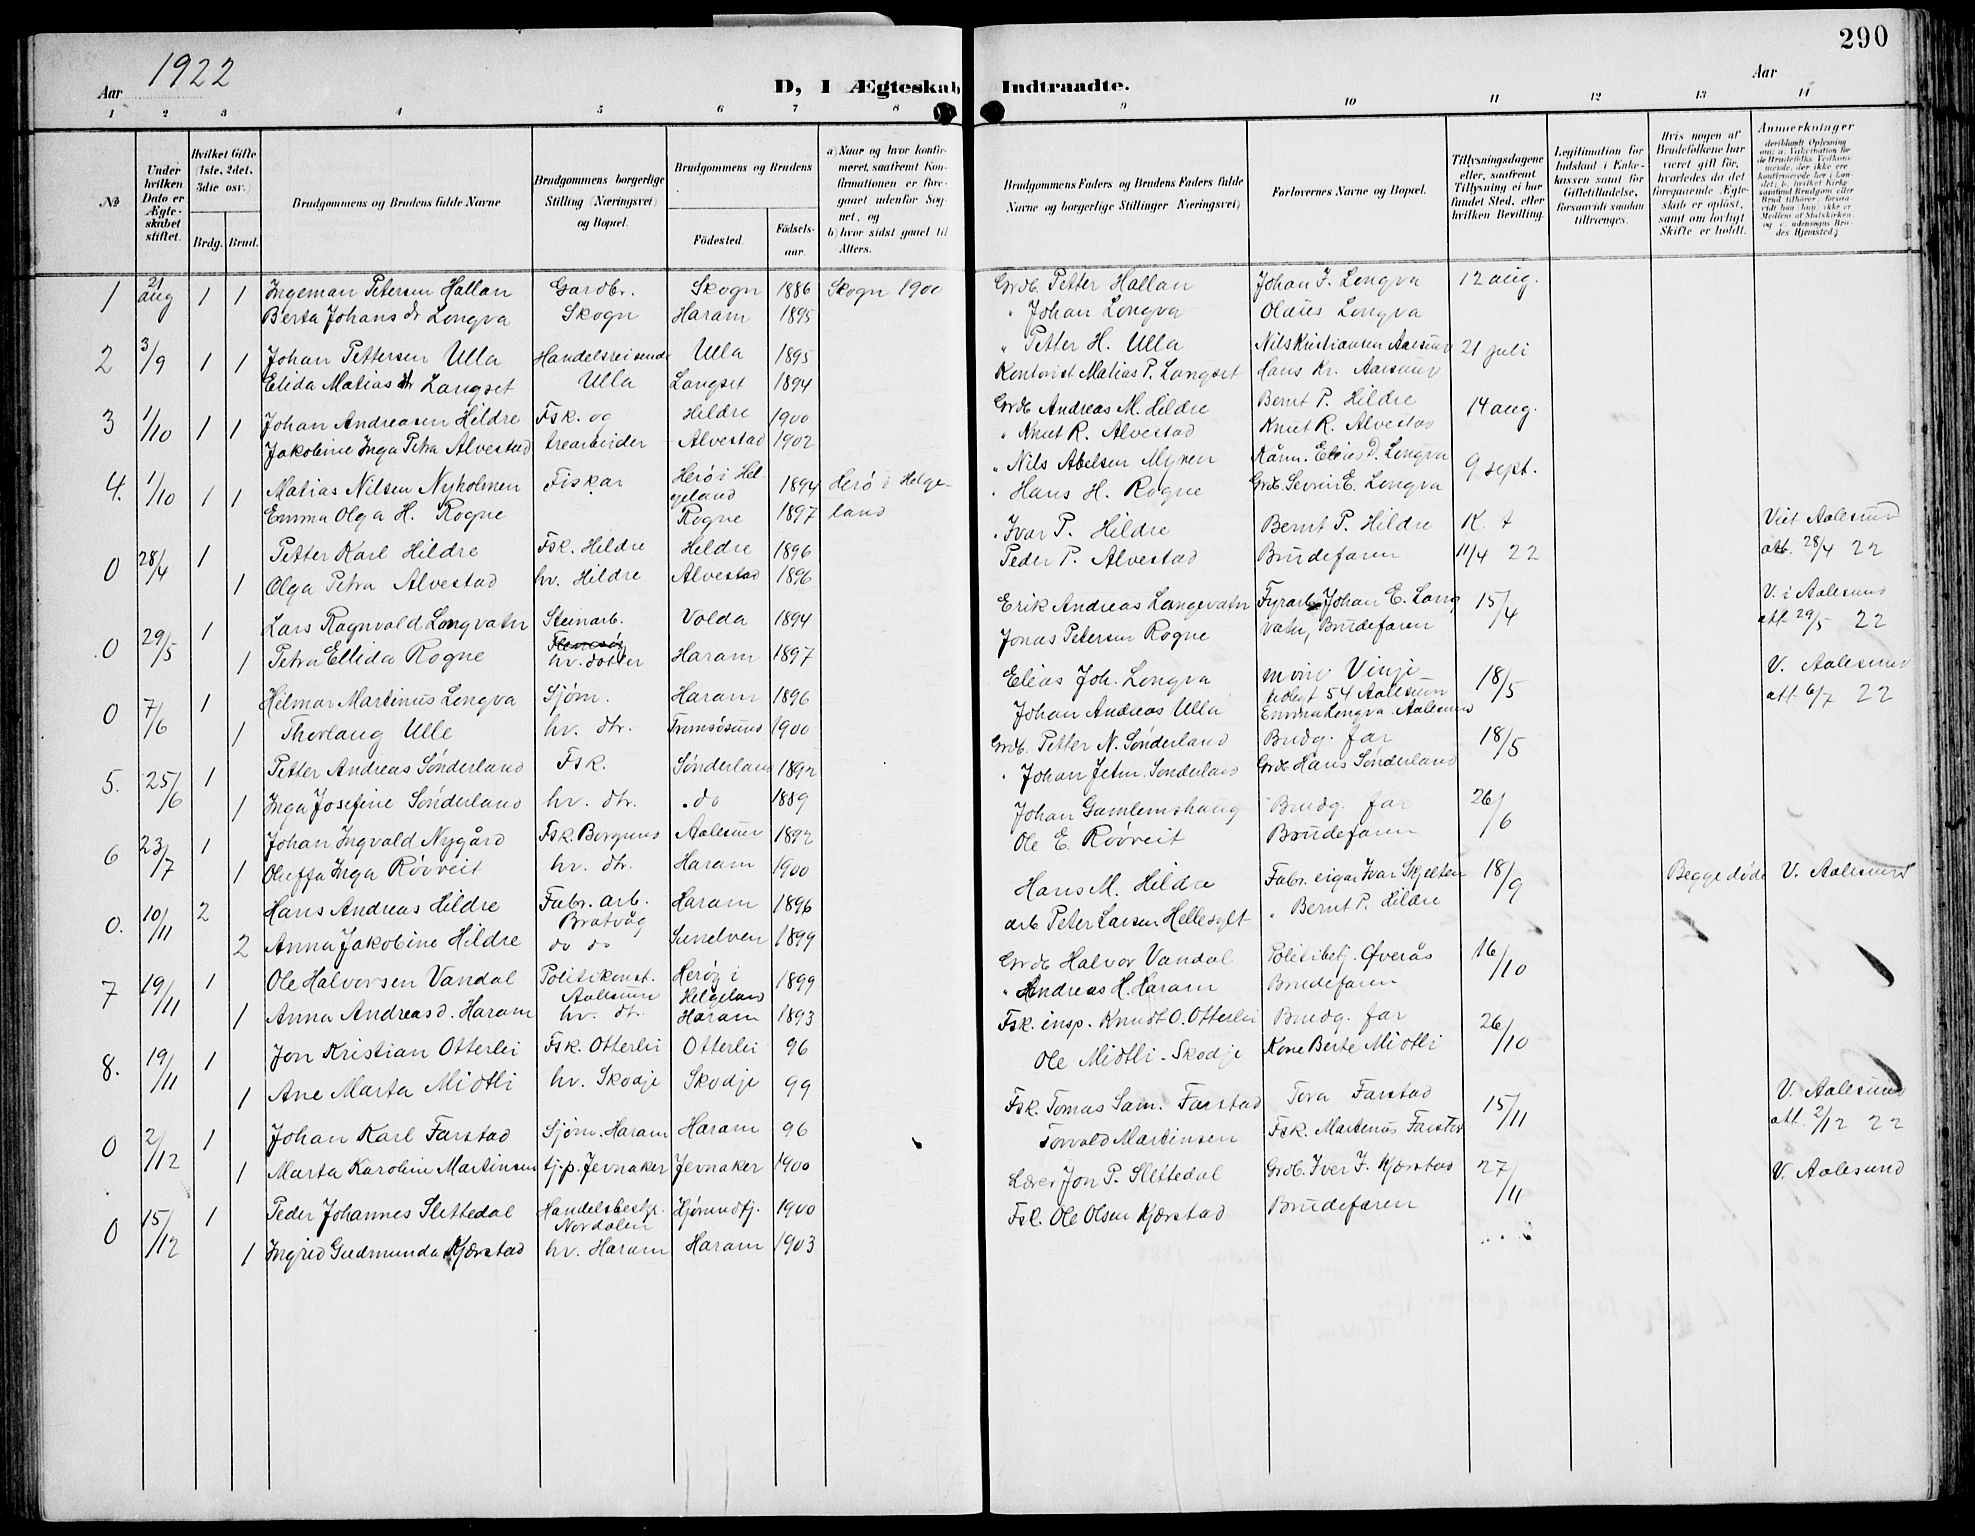 290
1922
Aar
D, I Ægteskab Indtraadte.
Aar
1 2 3 4 5 6 7 8 9 10 11 12 13 14
No
Under hvilken Dato er Ægteskabet stiftet.
Hvilket Gifte (1ste, 2det, 3die osv.)
Brdg. Brud.
Brudgommens og Brudens fulde Navne
Brudgommens borgerlige Stilling (Næringsvei) og Bopæl.
Brudgommens og Brudens
Fødested.
Fødselsaar.
a) Naar og hvor konfirmeret, saafremt Konfirmationen er foregaaet udenfor Sognet, og
b) hvor sidst gaaet til Alters.
Brudgommens Faders og Brudens Faders fulde Navne og borgerlige Stillinger (Næringsvei)
Forlovernes Navne og Bopæl.
Tillysningsdagene eller, saafremt Tillysning ei har fundet Sted, efter hvilken Bevilling.
Legitimation for Indskud i Enkekassen samt for Giftetilladelse, forsaavidt saadan tiltrænges.
Hvis nogen af Brudefolkene har været gift før, hvorledes da det foregaaende Ægteskab er opløst, samt om lovligt Skifte er holdt.
Anmerkninger
1 21 aug 1 1 Ingeman Petersen Hallan Gardbr. Skogn 1886 Skogn 1900 Grdb. Petter Hallan Johan J. Longva 12 aug.
Berta Johans dr Longva Skogn Haram 1895 " Johan Longva Olaus Longva
2 3/9 1 1 Johan Pettersen Ulla Handelsreisende Ulla 1895 " Petter H. Ulla Nils Kristiansen Aalesund 21 juli
Elida Matias dr Langset Ulla Langset 1894 Kontorist Matias P. Langset Hans Kr. Aalesund
3 1/10 1 1 Johan Andreasen Hildre Fsk. og Hildre 1900 Grdb Andreas M. Hildre Bernt P. Hildre 14 aug.
Jakobine Inga Petra Alvestad trearbeider Alvestad 1902 " Knut R. Alvestad Knut R. Alvestad
4. 1/10 1 1 Matias Nilsen Nyholmen Fiskar Herø i Helgeland 1894 Herø i Helgeland " Nils Abelsen Myren Elias D. Longva 9 sept.
Emma Olga H. Rogne Rogne 1897 " Hans H. Rogne Grdb. Severin E. Longva
0 28/4 1 Petter Karl Hildre Fsk. Hildre Hildre 1896 " Ivar P. Hildre Bernt P. Hildre K. t Viet Aalesund
1 Olga Petra Alvestad hv. Hildre Alvestad 1896 Peder P. Alvestad Brudefaren 11/4 22 att. 28/4 22
0 29/5 1 Lars Ragnvald Longvatn Steinarb. Volda 1894 Erik Andreas Langevatn Fyrarb. Johan E. Langvatn, Brudefaren 15/4 V. i Aalesund
1 Petra Ellida Rogne hv. dotter Haram 1897 Jonas Petersen Rogne att. 29/5 22
0 7/6 1 Hilmar Martinus Longva Sjøm. Haram 1896 Elias Joh. Longva Vinje 54 Aalesund 18/5 V. Aalesund
1 Thorlaug Ulle hv. dtr. Tromsøsund 1900 Johan Andreas Ulla Emma Longva Aalesund att 6/7 22
5. 25/6 1 Petter Andreas Sønderland Fsk. Sønderland 1892 Grdb. Petter N. Sønderland Brudg. far 18/5
1 Inga Josefine Sønderland hv. dtr. do 1889 " Johan Jetm. Sønderland Grdb Hans Sønderland
6 23/7 1 Johan Ingvald Nygård Fsk. Borgund Aalesund 1892 Johan Gamlemshaug Brudg. far 26/6
1 Oluffa Inga Røvreit hv. dtr. Haram 1900 Ole E. Røvreit Brudefaren
0. 10/11 2 Hans Andreas Hildre Fabr. arb. Bratvåg Haram 1896 Hans M. Hildre Fabr. eigar Ivar Skjelten 18/9 Begge døde V. Aalesund
2 Anna Jakobine Hildre do do Sunelven 1899 arb Peter Larsen Hellesylt " Bernt P. Hildre
7 19/11 1 Ole Halvorsen Vandal Politikonst. Aalesund Herøy i Helgeland 1899 Grdb Halvor Vandal Politibetj. Øverås 16/10
1 Anna Andreas d. Haram hv. dtr. Haram 1893 " Andreas H. Haram Brudefaren
8. 19/11 1 Jon Kristian Otterlei Fsk. Otterlei Otterlei 96 Fsk. insp. Knudt O. Otterlei Brudg. far 26/10
1 Ane Marta Midtli hv. Skodje Skodje 99 Ole Midtli - Skodje Kone Berte Midtli
0 2/12 1 Johan Karl Farstad Sjøm. Haram Haram 96 Fsk. Tomas Sam. Farstad Tora Farstad 15/11 V. Aalesund
1 Marta Karoline Martinsen tj.p. Jevnaker Jevnaker 1900 Torvald Martinsen Fsk. Martenus Farstad att. 2/12 22
0 15/12 1 Peder Johannes Slettedal Handelsbestyr. Nordalen Hjørundfj. 1900 Lærer Jon P. Slettedal Grdb. Iver J. Kjærstad 27/11 V. Aalesund
1 Ingrid Gudmunda Kjærstad hv. Haram Haram 1903 Fsk. Ole Olsen Kjærstad Brudefaren